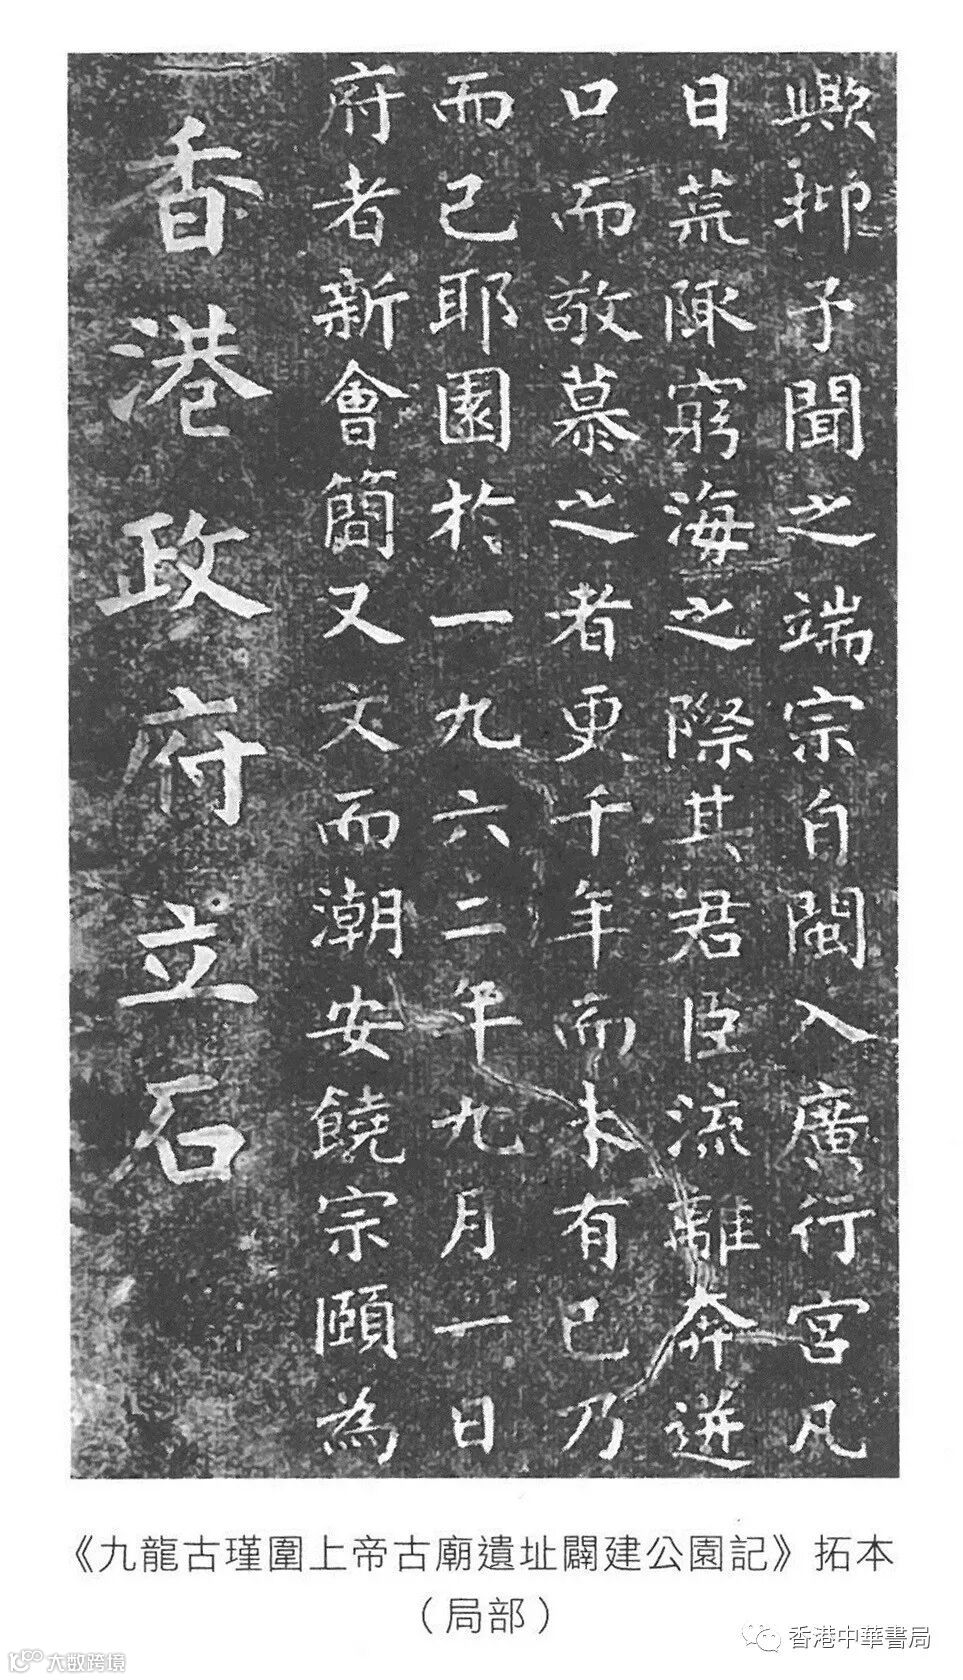 歟抑予聞之端宗自閩入廣行宮凡
日荒陬窮海之際其君臣流離奔迸
口而敬慕之者更千年而未有已乃
而已耶園於一九六二年九月一日
府者新會簡又文而潮安饒宗頤為
香港政府立石
《九龍古瑾圍上帝古廟遺址闢建公園記》拓本
(局部)
香港中華書局
大数跨境